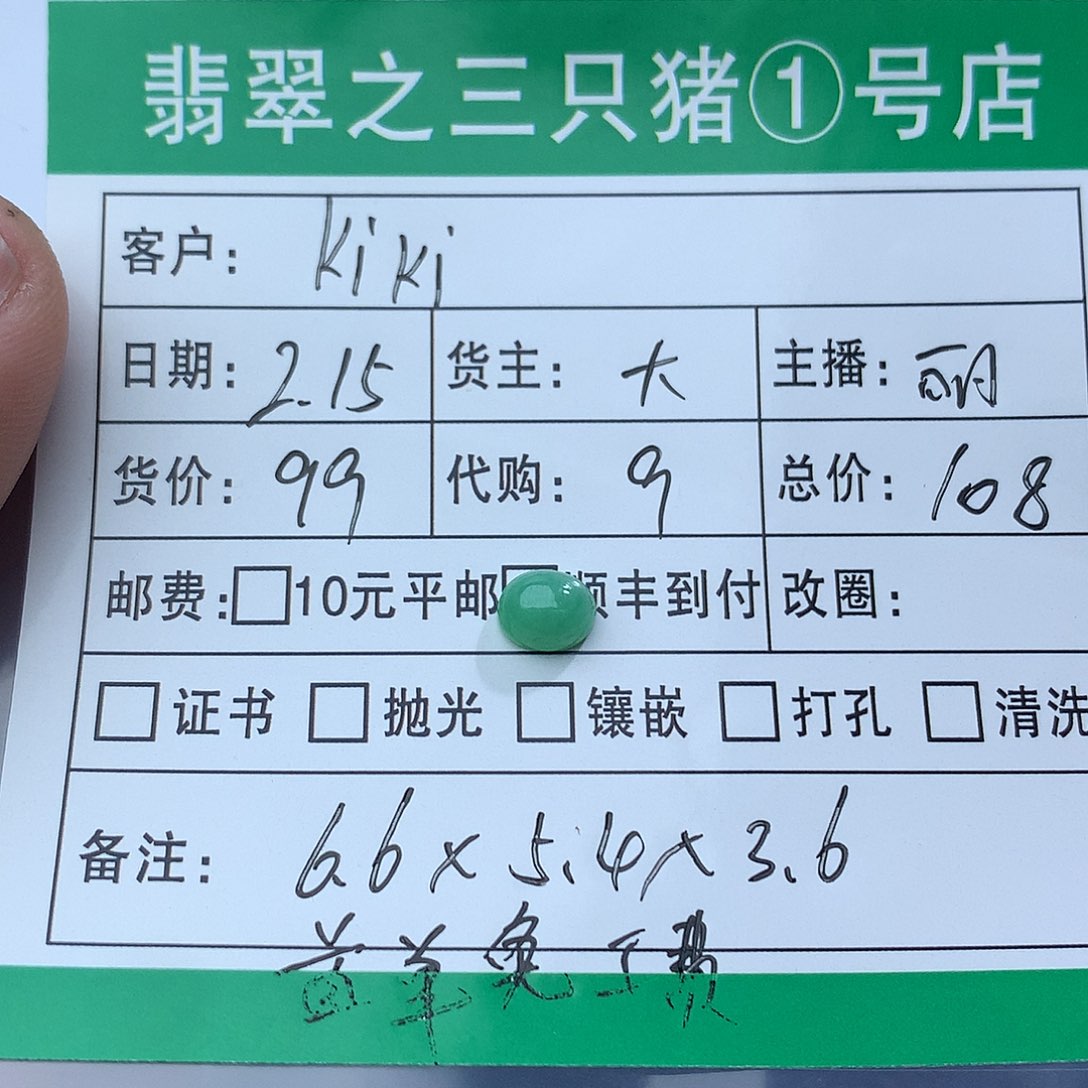 翡翠之三只猪①号店
客户: kiki
日期: 2.15 货主: 大 主播: 丽
货价: 99 代购: 9 总价: 108
邮费: 10元平邮 顺丰到付 改圈:
证书 抛光 镶嵌 打孔 清洗
备注: 6.6×5.4×3.6
首单免工费